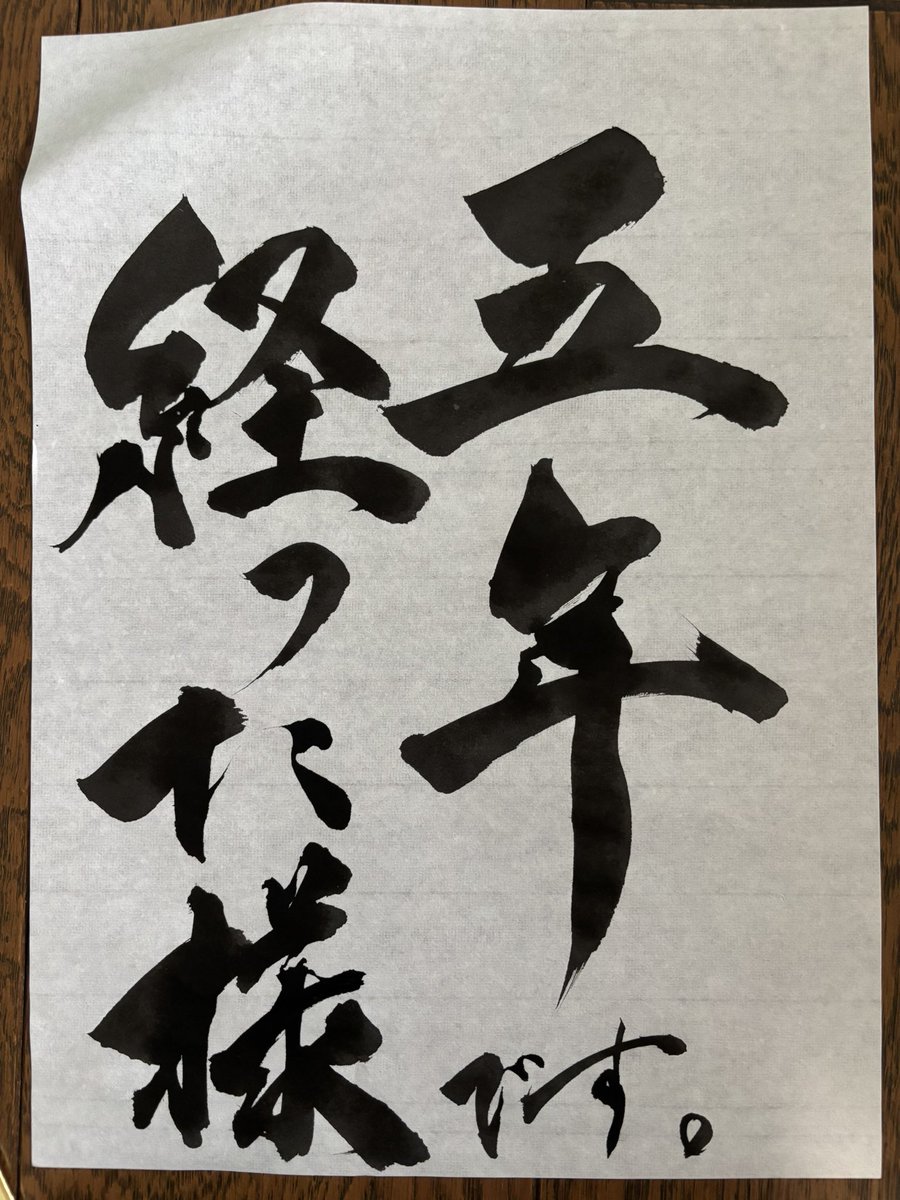 五年
経った様
です。